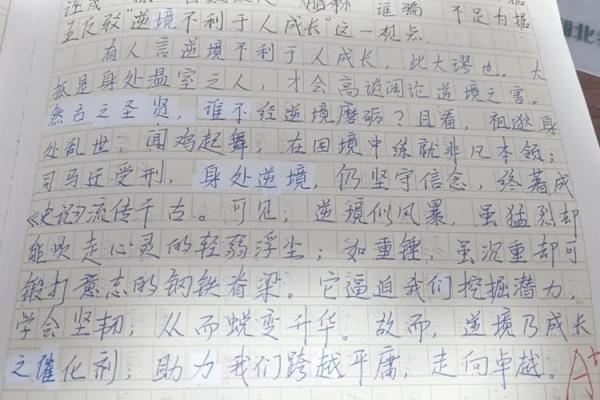 五反驳"逆境不利于人成长"这一观点.
有人言逆境不利于人成长,此大谬也,大
抵是身处温室之人,才会高谈阔论逆境之害。
然古之圣贤,谁不经逆境磨砺?且看,祖逖身
处乱世,闻鸡起舞,在困境中练就非凡本领;
司马迁受刑,身处逆境,仍坚守信念,终著成
《史记》流传千古。可见,逆境似风暴,虽猛烈却
能吹走心灵的轻弱浮尘;如重锤,虽沉重却可
锻打意志的钢铁脊梁。它逼迫我们挖掘潜力,
学会坚韧,从而蜕变升华。故而,逆境乃成长
之催化剂,助力我们跨越平庸,走向卓越。
A+